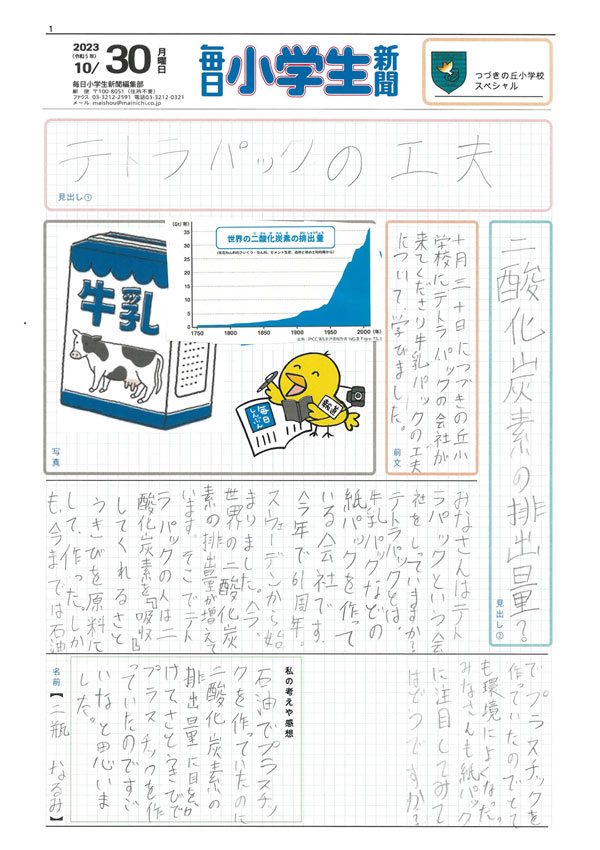 1
2023
(令和5年)
10/30
月曜日
毎日小学生新聞編集部
郵 便 〒100-8051(住所不要)
ファクス 03-3212-2591 電話03-3212-0321
メール maishou@mainichi.co.jp
毎日
小学生
新聞
つづきの丘小学校
スペシャル
テトラパックの工夫
見出し①
二酸化炭素の排出量?
見出し②
十月三十日につづきの丘小
学校にテトラパックの会社が
来てくださり牛乳パックの工夫
について学びました。
前文
牛乳
(Gt/年)
世界の二酸化炭素の排出量
35
30
25
20
15
10
5
0
1750
1800
1850
1900
1950
2000(年)
毎日
しんぶん
報道
写真
みなさんはテト
ラパックという会
社をしっていますか?
テトラパックとは、
牛乳パックなどの
紙パックを作って
いる会社です。
今年で61周年。
スウェーデンから始
まりました。今、
世界の二酸化炭
素の排出量が増えて
います。そこでテト
ラパックの人は二
酸化炭素を『吸収』
してくれるさと
うきびを原料に
して、作った。しか
も、今までは石油
でプラスチックを
作っていたのでとて
も環境によくなった。
みなさんも紙パック
に注目してみて
はどうですか?
私の考えや感想
石油でプラスチッ
クを作っていたのに
二酸化炭素の
排出量に目をか
けてさとうきびで
プラスチックを作
っていたのですご
いなと思いま
した。
名前【二瓶 なるみ】